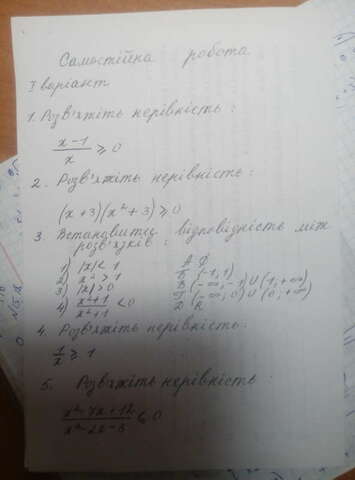 Самостійна робота
I варіант
1. Розв'яжіть нерівність:
x-1/x ≥ 0
2. Розв'яжіть нерівність:
(x+3)(x²+3) ≥ 0
3. Встановити відповідність між
розв'язків:
1) |x| < 1 А ∅
2) x² > 1 Б (-1; 1)
3) |x| > 0 В (-∞; -1) ∪ (1; +∞)
4) x²+1/x²+1 < 0 Г (-∞; 0) ∪ (0; +∞)
Д R
4. Розв'яжіть нерівність:
1/x ≥ 1
5. Розв'яжіть нерівність:
x²-7x+12/x²-2x-3 ≤ 0